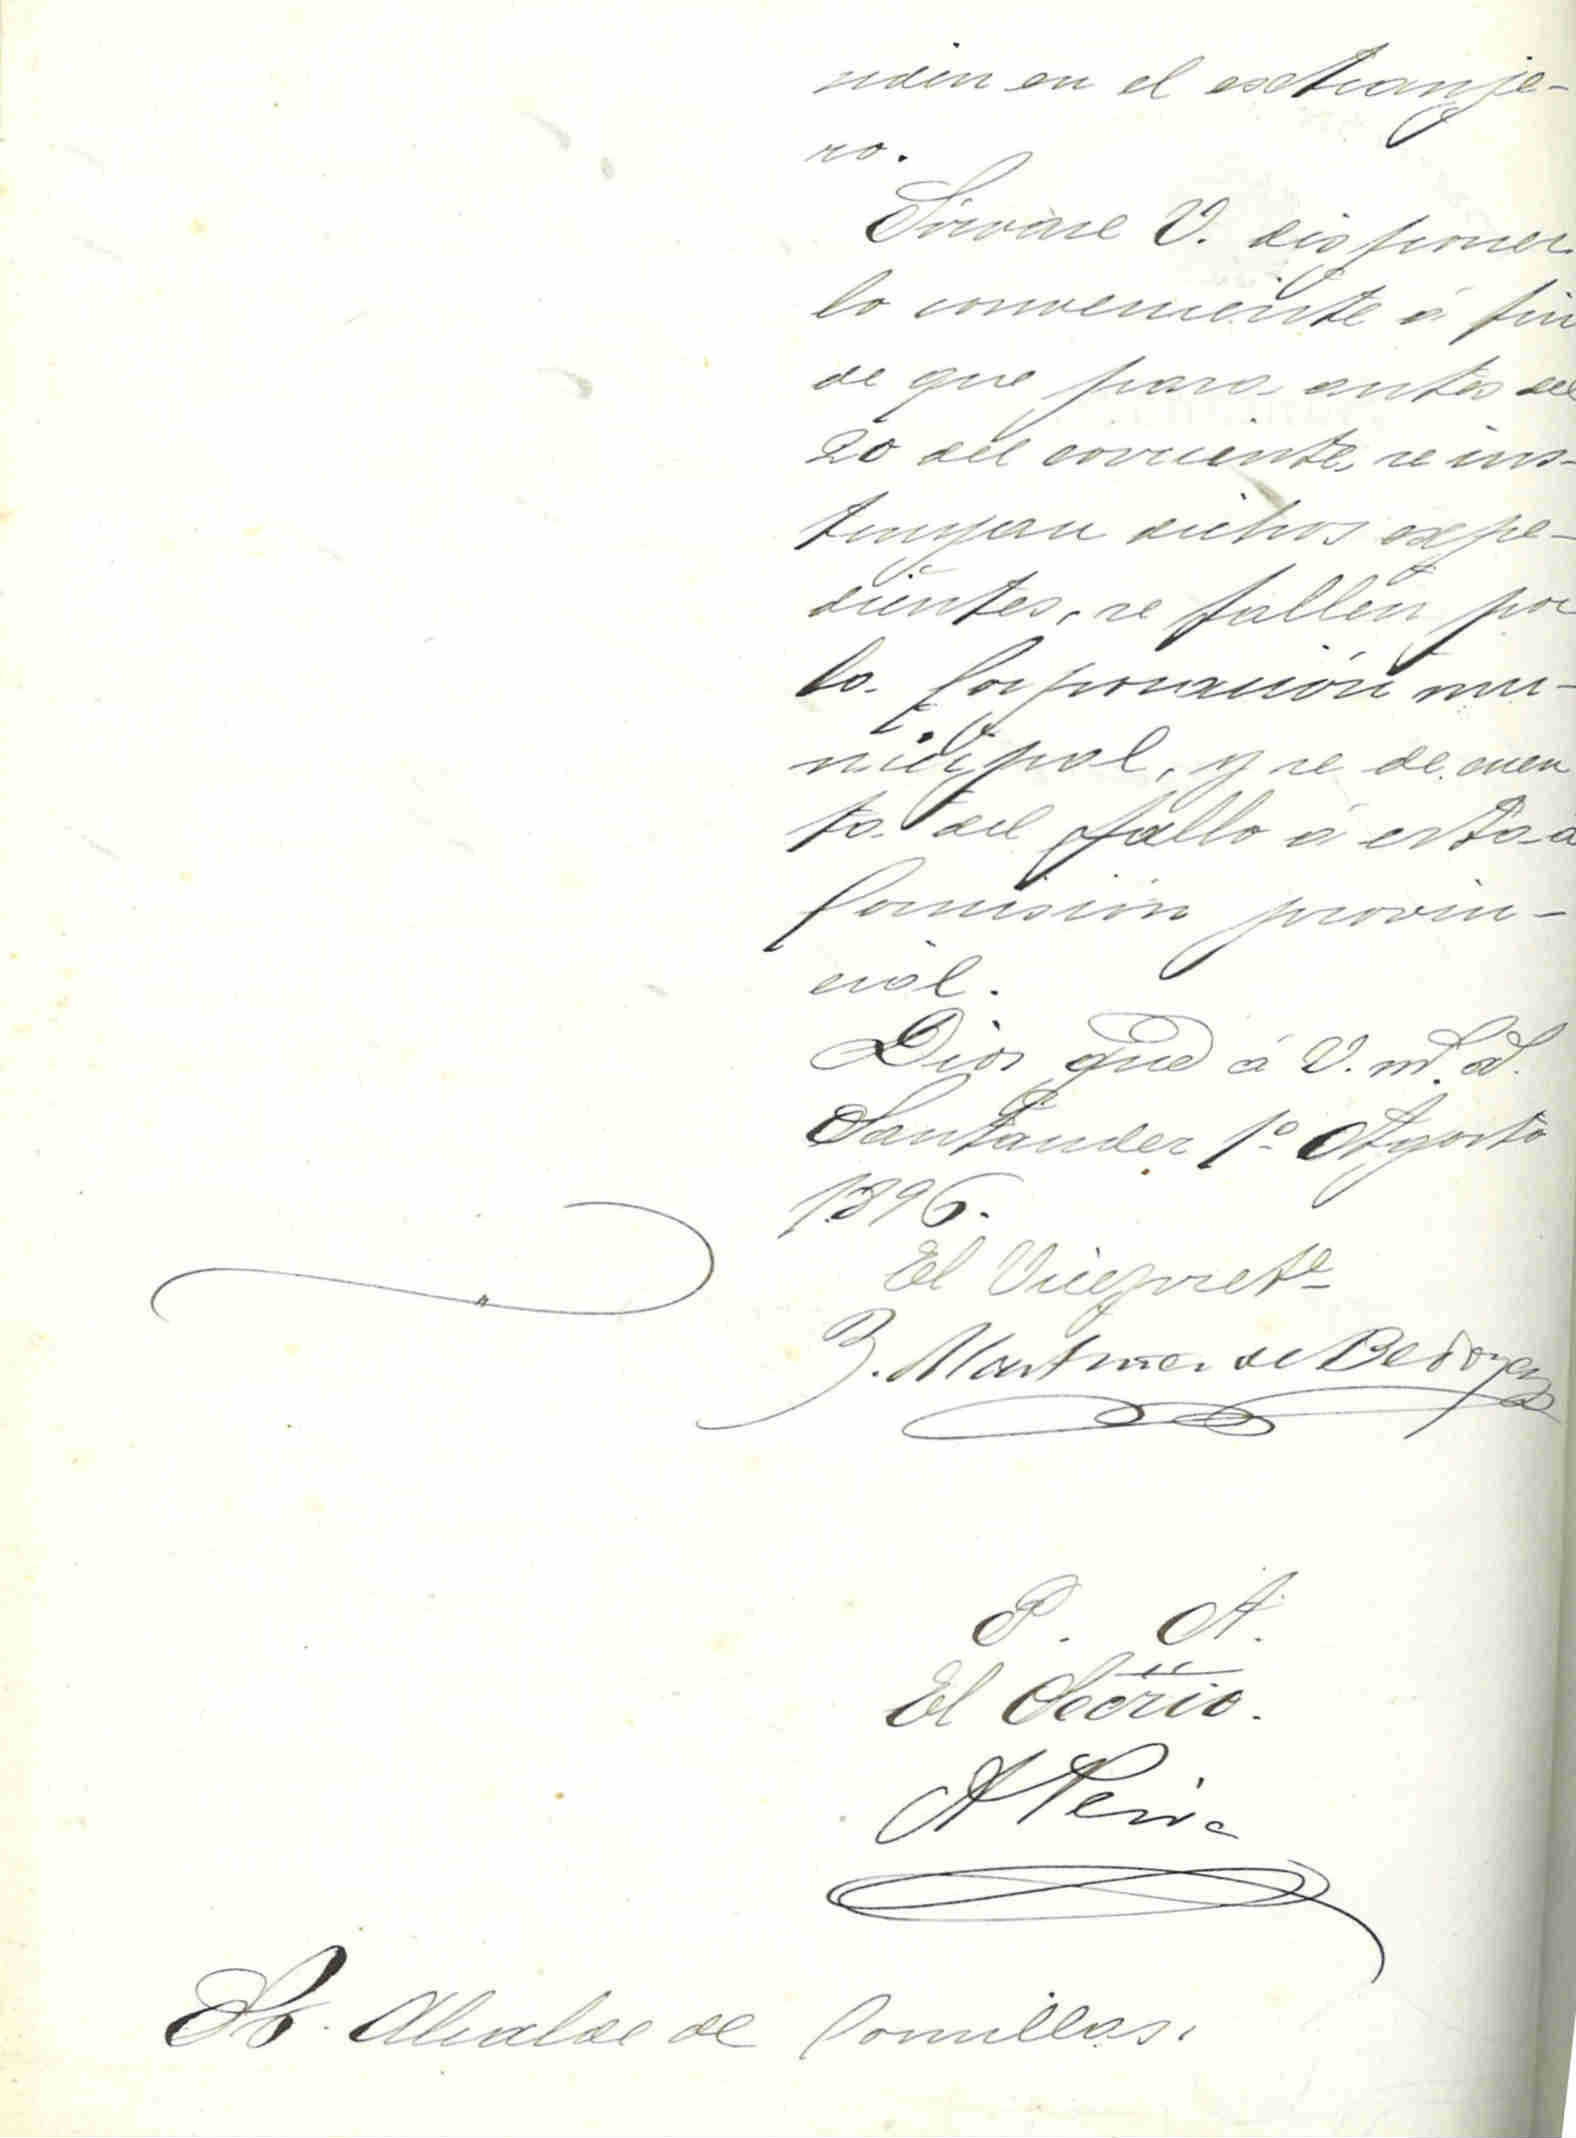 siden en el extranje-
ro.
Sírvase V. disponer
lo conveniente á fin
de que para antes del
20 del corriente, se ins-
truyan dichos expe-
dientes, se fallen por
la Corporación mu-
nicipal, y se de cuen
ta del fallo á esta
Comisión provin-
cial.
Dios gue á V. ms. as.
Santander 1º Agosto
1896.
El Vicepreste
Martinez de Bedoya
P. A.
El Secrio.
A
Sr. Alcalde de Comillas.